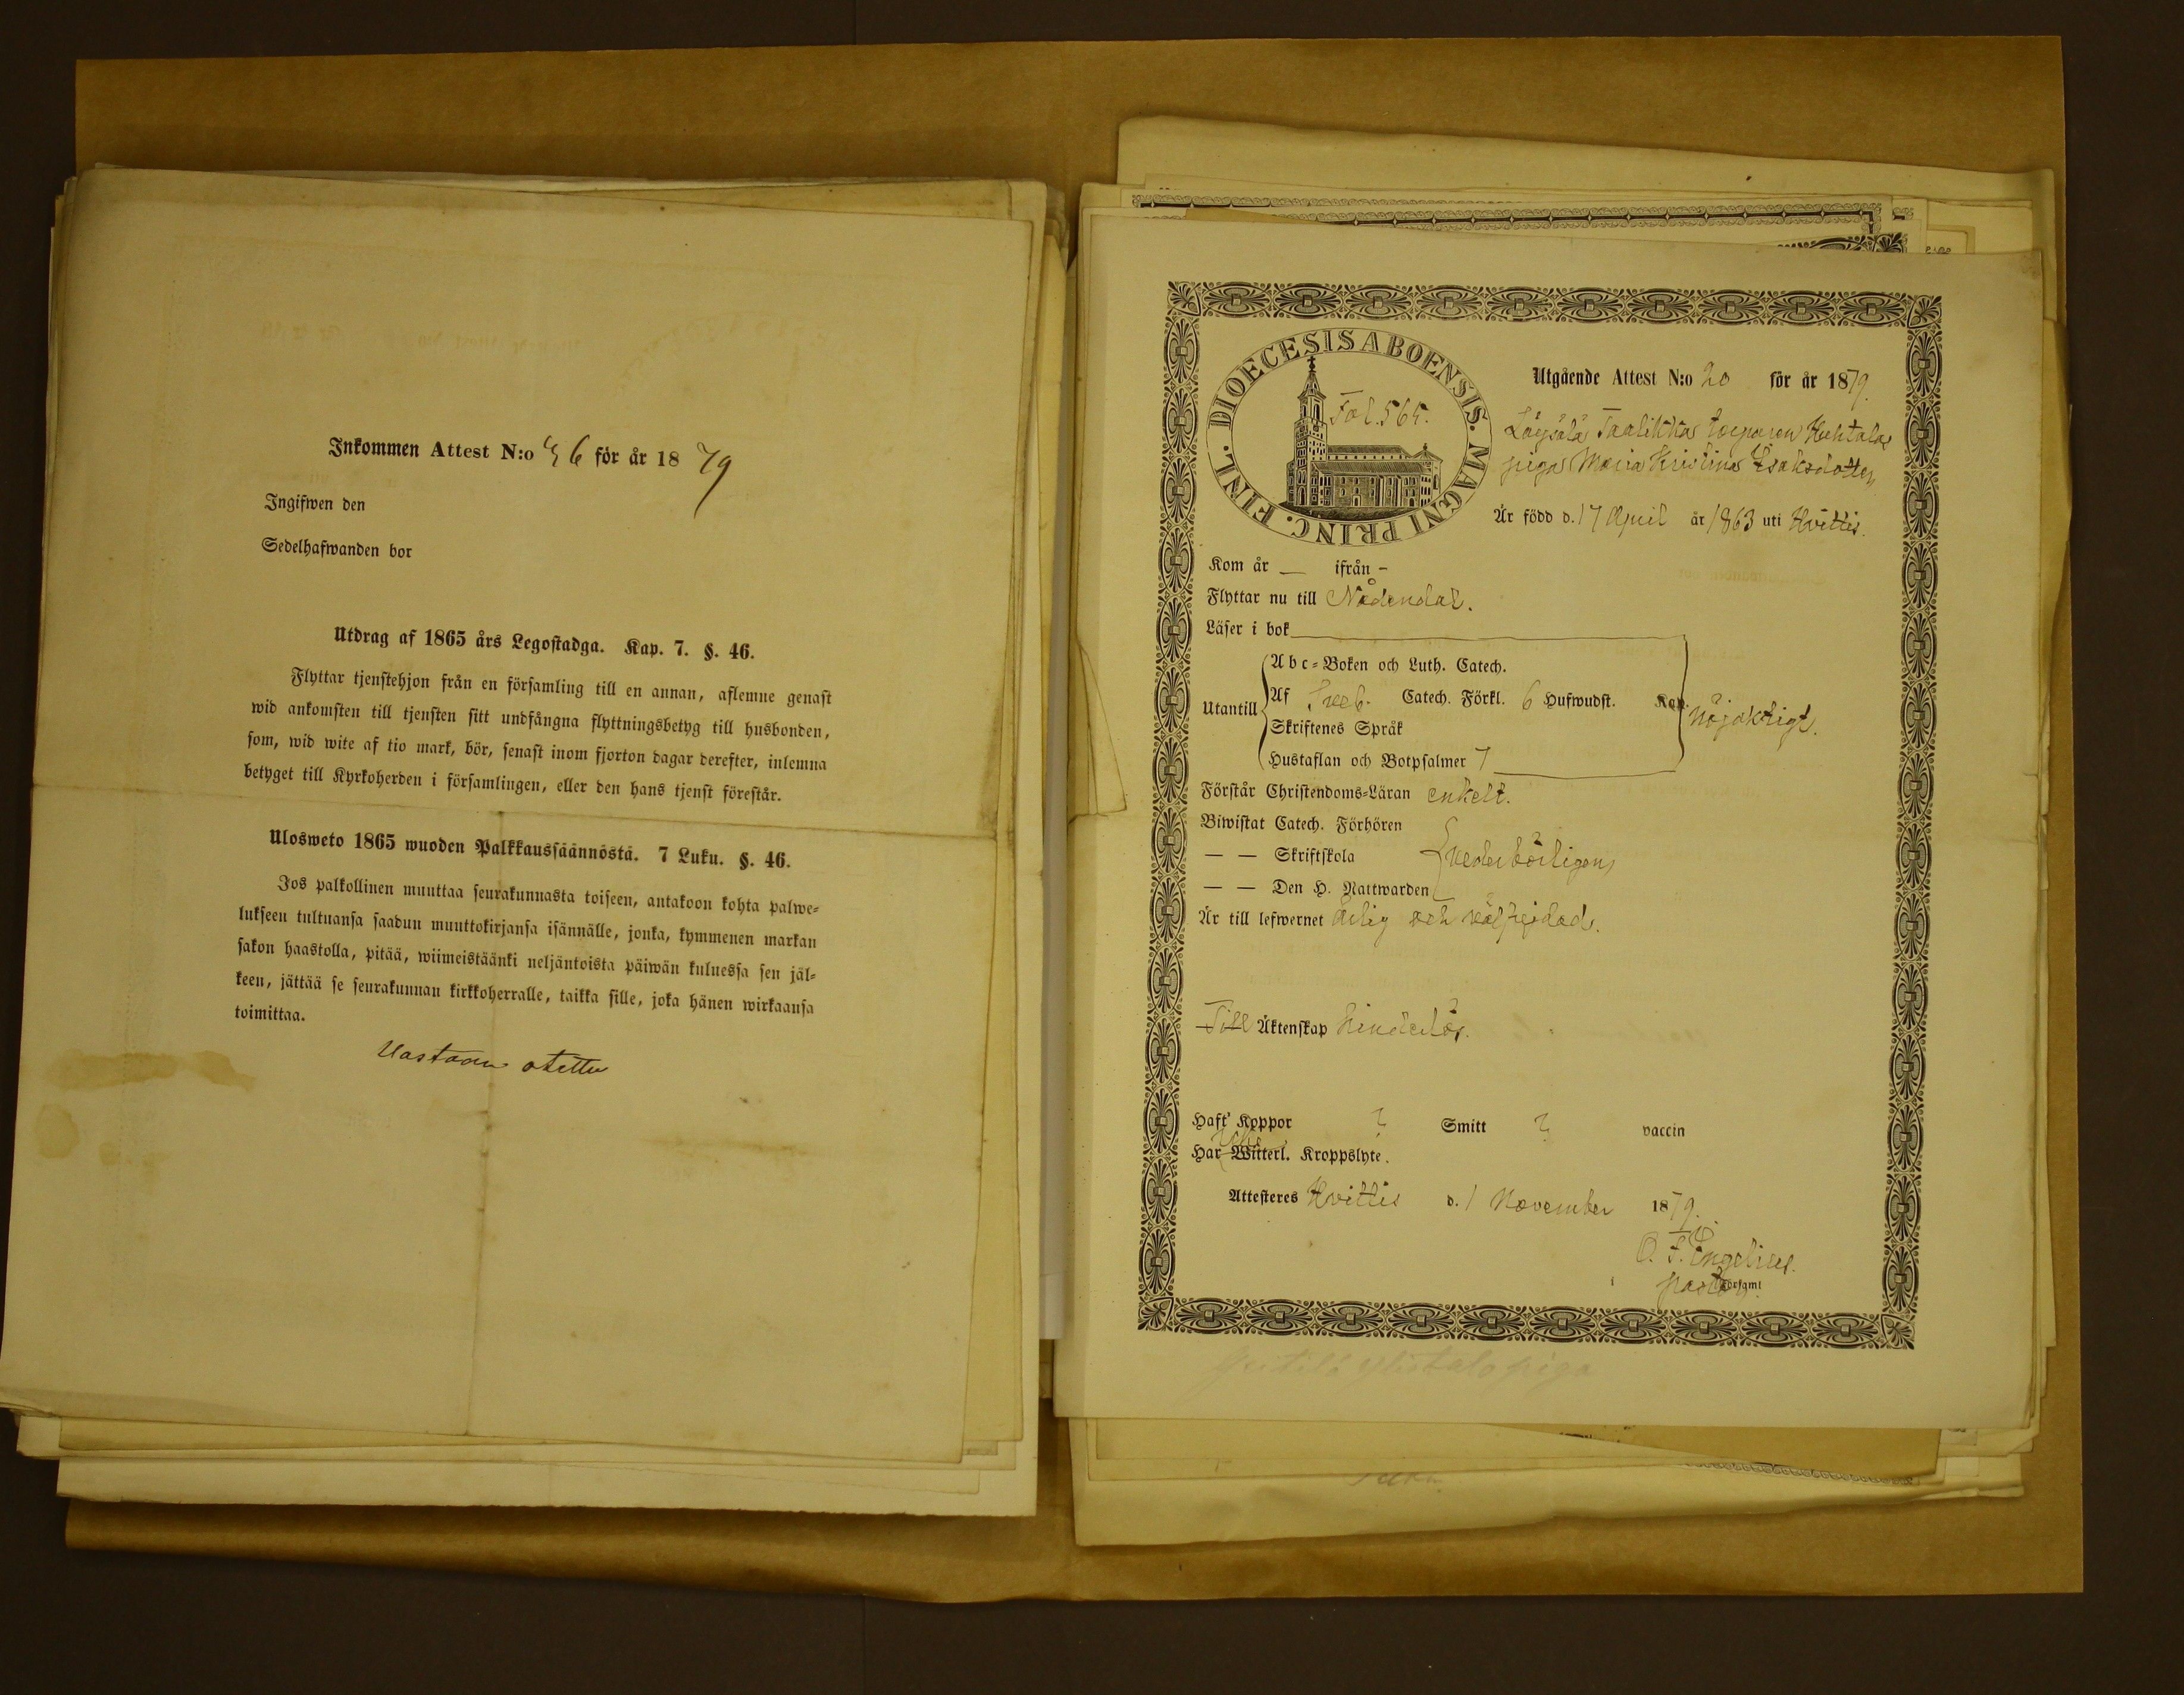 Inkommen Attest N:o 46 för år 1879
Ingifwen den
Sedelhafwanden bor
Utdrag af 1865 års Legostadga. Kap. 7. §. 46.
Flyttar tjenstehjon från en församling till en annan, aflemne genast
wid ankomsten till tjensten sitt undfångna flyttningsbetyg till husbonden,
som, wid wite af tio mark, bör, senast inom fjorton dagar derefter, inlemna
betyget till Kyrkoherden i församlingen, eller den hans tjenst förestår.
Ulosweto 1865 wuoden Palkkaussäännöstä. 7 Luku. §. 46.
Jos palkollinen muuttaa seurakunnasta toiseen, antakoon kohta palwe-
lukseen tultuansa saadun muuttokirjansa isännälle, jonka, kymmenen markan
sakon haastolla, pitää, wiimeistäänki neljäntoista päiwän kuluessa sen jäl-
keen, jättää se seurakunnan kirkkoherralle, taikka sille, joka hänen wirkaansa
toimittaa.
Vastaan otettu
DIOECESIS ABOENSIS. MAGNI PRINC. FINL.
Fol. 565.
Utgående Attest N:o 20 för år 1879.
torparen Huhtala
pigan Maria Kristina Isaksdotter
Är född d. 17 April år 1863 uti Hvittis.
Kom år — ifrån -
Flyttar nu till Nådendal.
Läser i bok
Abc-Boken och Luth. Catech.
Utantill Af Sveb. Catech. Förkl. 6 Hufwudst. Kap. nöjaktigt.
Skriftenes Språk
Hustaflan och Botpsalmer 7
Förstår Christendoms-Läran enkelt.
Biwistat Catech. Förhören
— — Skriftskola vederbörligen
— — Den H. Nattwarden
Är till lefwernet ärlig och välfrejdad.
Till Äktenskap hinderlös.
Haft Koppor ? Smitt ? vaccin
Har Witterl. Kroppslyte.
Attesteres Hvittis d. 1 November 1879.
O. F. Engelius.
pastor